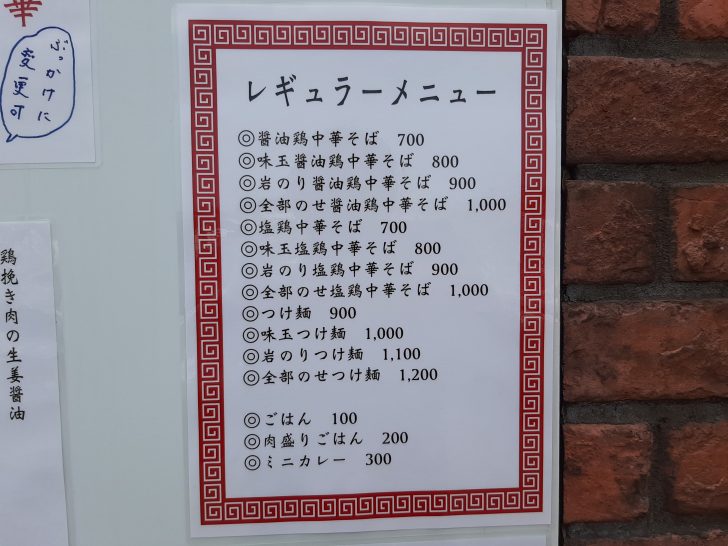 華
ぶっかけに
変更可
鶏挽き肉の生姜醤油
レギュラーメニュー
◎醤油鶏中華そば 700
◎味玉醤油鶏中華そば 800
◎岩のり醤油鶏中華そば 900
◎全部のせ醤油鶏中華そば 1,000
◎塩鶏中華そば 700
◎味玉塩鶏中華そば 800
◎岩のり塩鶏中華そば 900
◎全部のせ塩鶏中華そば 1,000
◎つけ麺 900
◎味玉つけ麺 1,000
◎岩のりつけ麺 1,100
◎全部のせつけ麺 1,200
◎ごはん 100
◎肉盛りごはん 200
◎ミニカレー 300